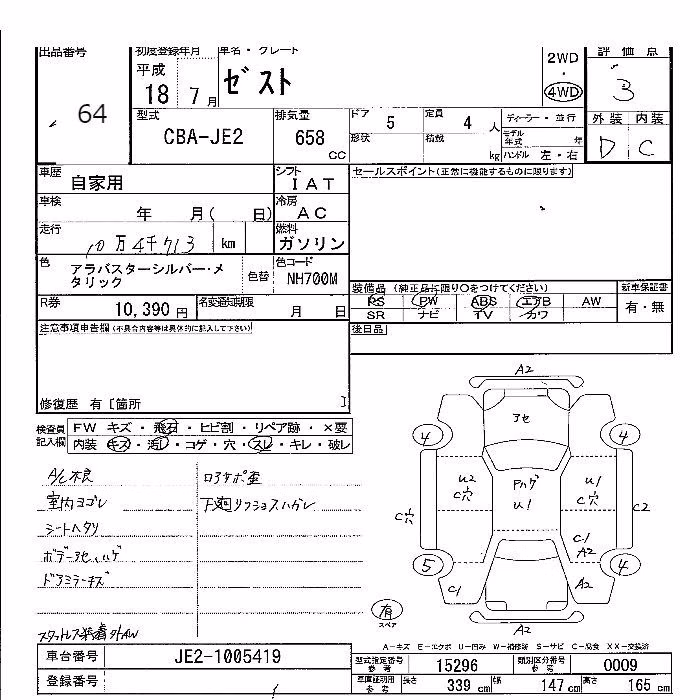 出品番号 初度登録年月 車名・グレード 2WD 評価点
64 平成 18 7月 ゼスト ・ 4WD 3
型式 排気量 ドア 5 定員 4 人 ディーラー・並行 外装 内装
CBA-JE2 658 CC 形状 積載 kg モデル年式 年 D C
ハンドル 左・右
車歴 自家用 シフト IAT セールスポイント(正常に機能するものに限ります)
車検 年 月( 日) 冷房 AC
走行 10万4千713 km 燃料 ガソリン
色 アラバスターシルバー・メタリック 色替 色コード NH700M
装備品 (純正品に限り○をつけてください) 新車保証書
R券 10,390 円 名変通知期限 月 日 PS PW ABS エアB AW 有・無
SR ナビ TV カワ
注意事項申告欄(不具合内容等は具体的に記入して下さい) 後日品
修復歴 有[箇所 ]
検査員記入欄 FW キズ・飛石・ヒビ割・リペア跡・×要
内装 キズ・汚レ・コゲ・穴・スレ・キレ・破レ
A/C不良 ロアサポ歪
室内ヨゴレ 下廻リフショスハガレ
シートヘタリ
ボデーアセ、ハゲ
ドアミラーキズ
スタットレス装着 外AW
A2
アセ
4 4
U2 C穴 Pハゲ U1 U1 C穴
C穴 C2
C1 A2
5 4
C1 A2
有 スペア A2
A-キズ E-エクボ U-凹み W-補修跡 S-サビ C-腐食 XX-交換済
車台番号 JE2-1005419 型式指定番号 参考 15296 類別区分番号 参考 0009
登録番号 車庫証明用 参考 長さ 339 cm 幅 147 cm 高さ 165 cm